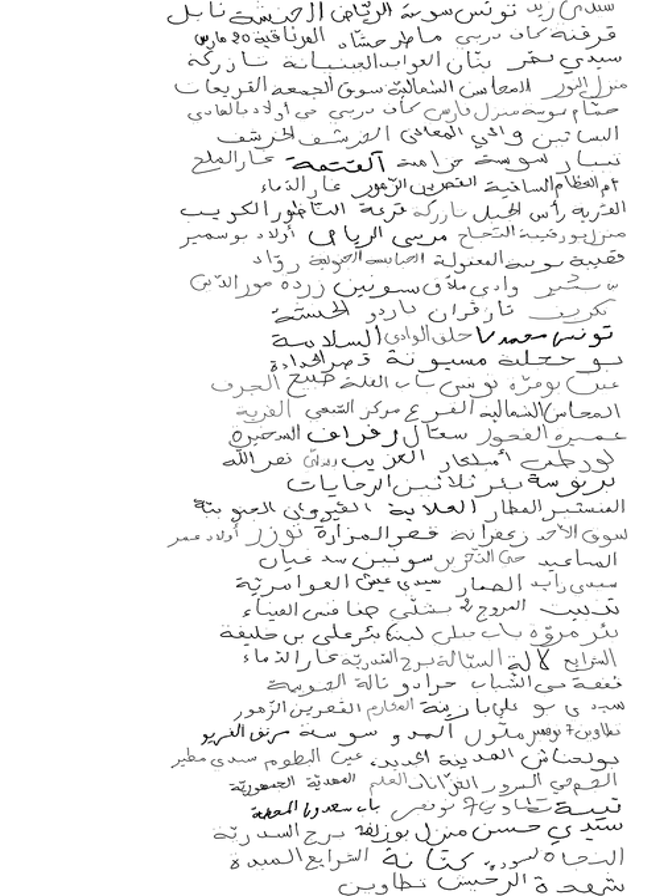 سيدي زيد تونس سوسة الرياض الحنشة نابل
قرقنة كاف دربي ماطر حشاد المرناقية 20 مارس
سيدي بنان العوابد تازركة
منزل النور المحاسن الشمالية سوق الجمعة القريعات
حمام سوسة منزل فارس كاف دربي حي أولاد بالهادي
البساتين وادي المعادن الخرشف الخرشف
تيبار سوسة حزامة القتمة غار الملح
أم العظام الساقية القصرين الزهور غار الدماء
القرية رأس الجبل تازركة قرعة الناظور الكريب
منزل بورقيبة النجاح مريبي الرياض أولاد بوسمير
قصيبة سوسة المعتولة الحبابسة الجنوبية روّاد
وادي ملاق سونين زردة مور الدين
تكريف تازغران باردو الخنشة
تونس محمد حلق الوادي السلامة
بو حجلة مسيوتة قصر الحدادة
عين بومرة تونس باب القلة ضبيع الجرف
المحاسن الشمالية الفرع مركز الشعبي القرية
عميرة الفحول سعتال رفراف الصخيرة
لورطب أميلكار الغريب نصر الله
برنوسة بئر ثلاثين الرحايات
المنستير المطار العلاية القيروان الجنوبية
سوق الأحد زعفرانة قصر المزارة توزر أولاد عمر
المساعيد حي التحرير سونين سد غيان
سيدي زايد الصمار سيدي عيش العوامرية
تدييت المروج 2 بشلي
بئر مروة باب لبنا بئر علي بن خليفة
الشرايع لالة الستالة برج السدرية غار الدماء
قفصة حي الشباب جرادو تالة
سيدي بو علي بازينة المكارم القصرين الزهور
تطاوين 7 نوفمبر متلول المدو سوسة مرناق الغريو
بولحناش المدينة الجديدة عين البطوم سيدي مطير
الجم حي السرور الغزانات القلم المهدية الجمهورية
تبسة تطاوين 7 نوفمبر باب سعدون المحطة
سيدي حسن منزل بوزلفة برج السدرية
النجاة لسودة كتانة الشرايع الميدة
شهدة الرخيش تطاوين